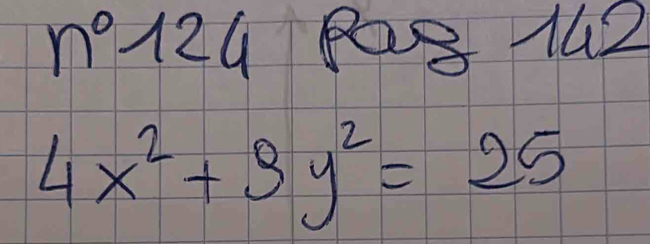 n° 124 Pag 142
4x² + 9y² = 25